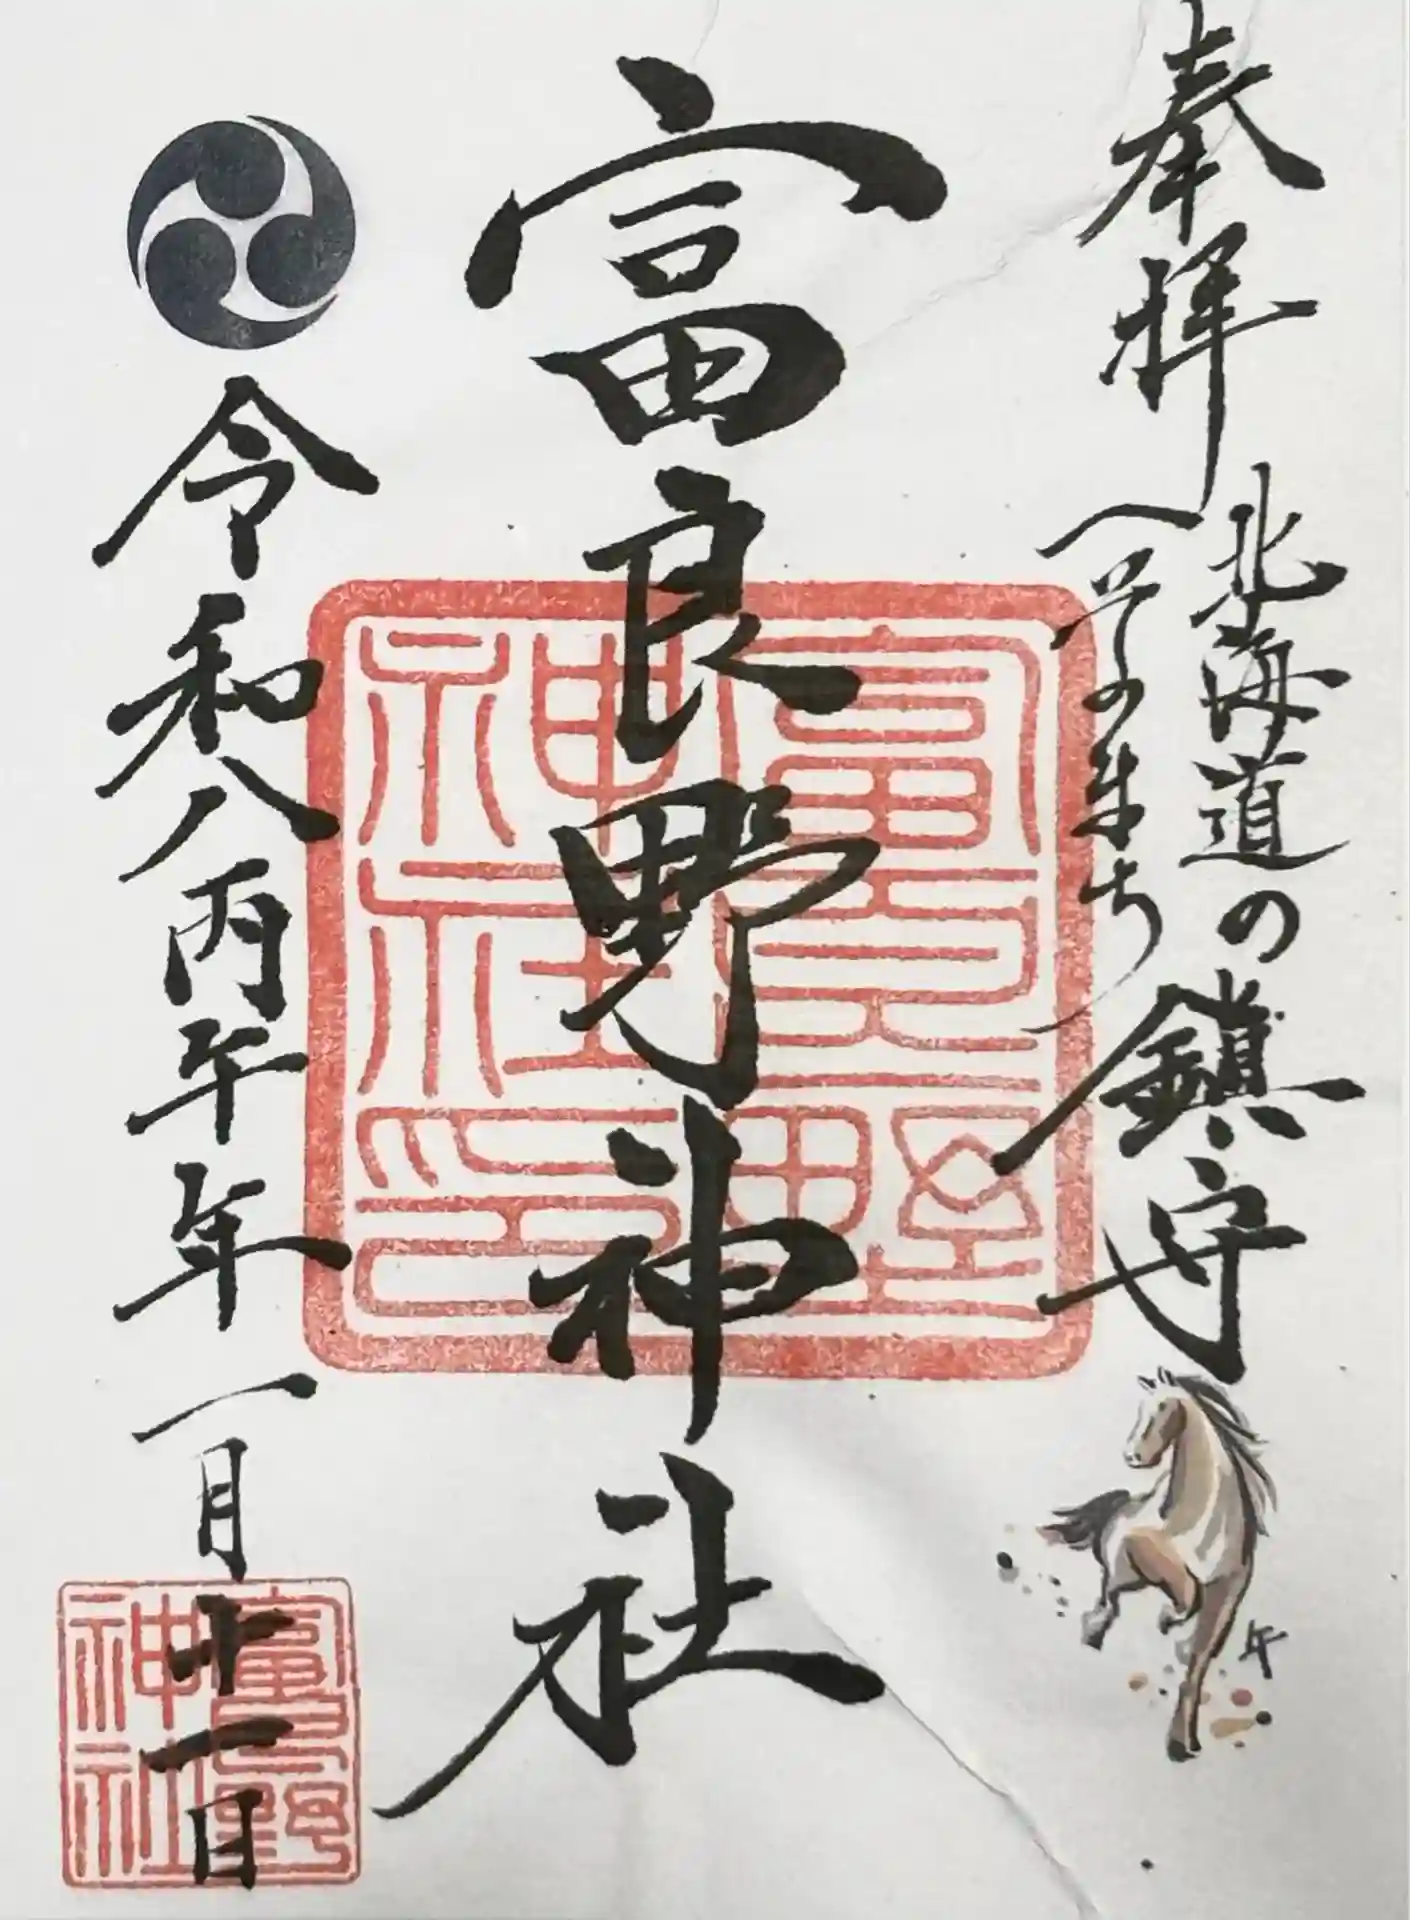 奉拝
北海道の
へそのまち
鎮守
午
富良野神社
富良野
神社印
令和八丙午年一月十一日
富良野
神社